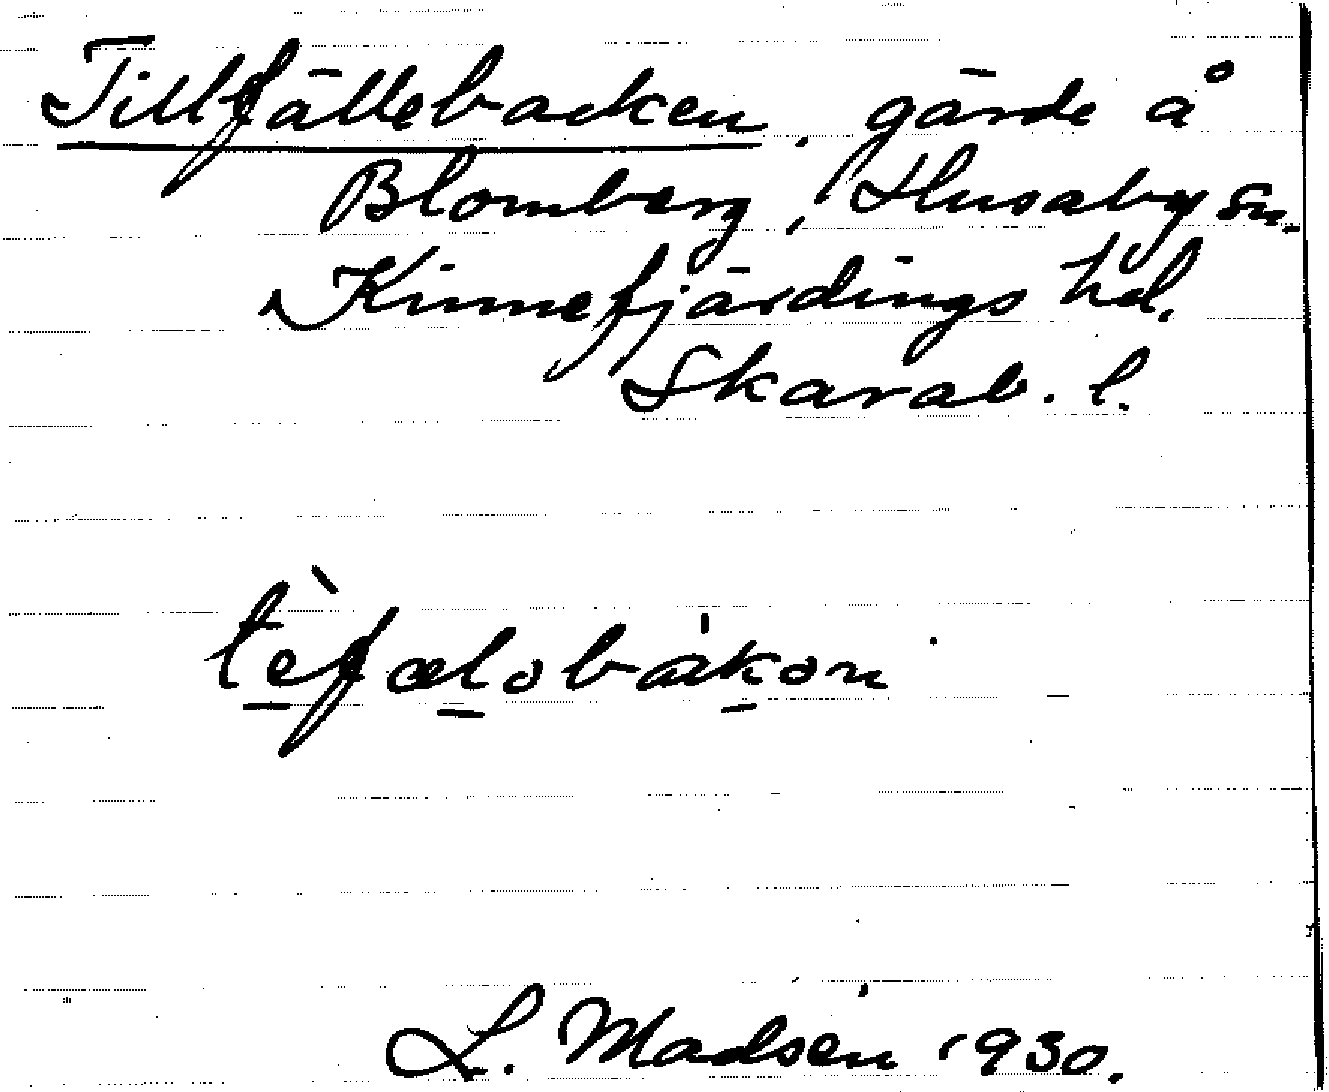 Tillfällebacken, gärde å
Blomberg, Husaby sn.
Kinnefjärdings hd.
Skarab. l.
tèfælobakon
L. Madsén 1930.